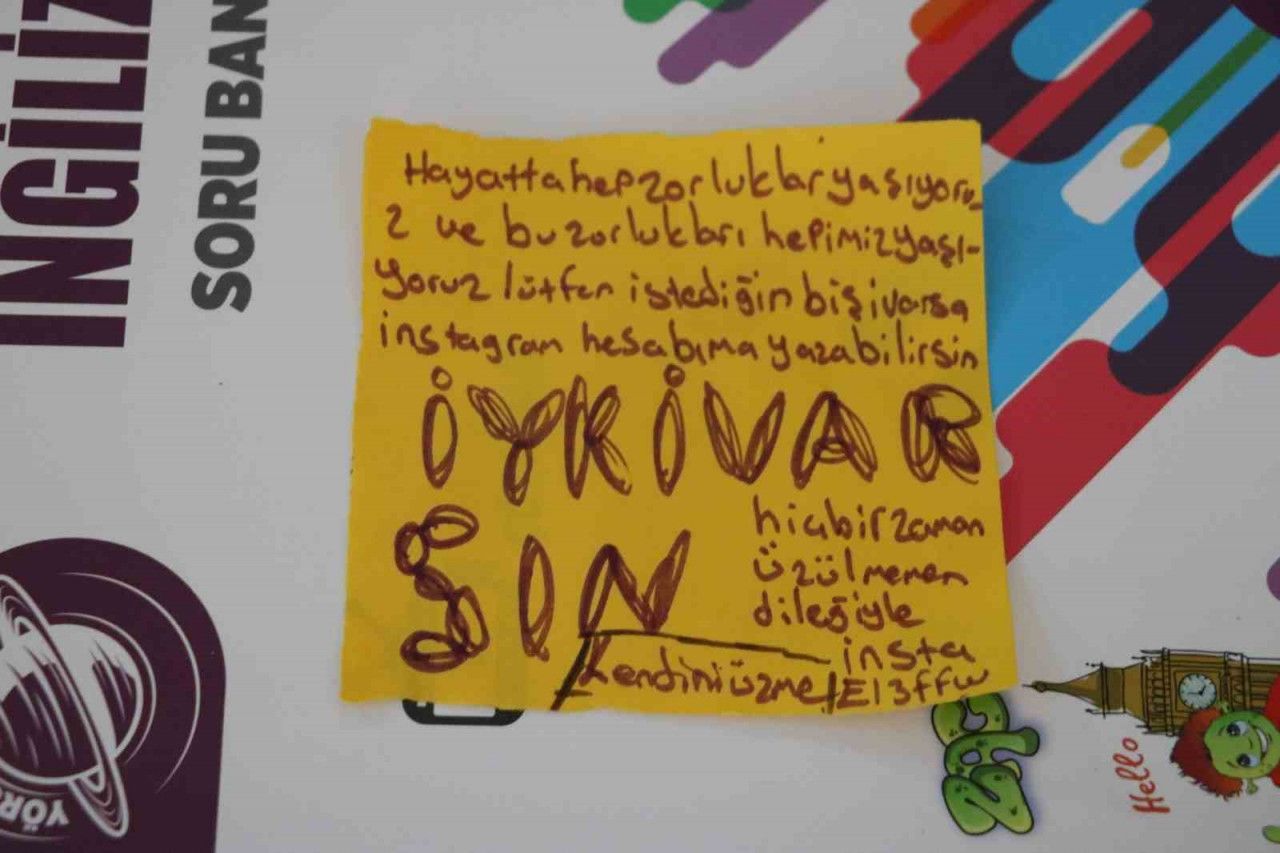 İNGİLİZ
SORU BAN
Hayatta hep zorluklar yaşıyoru
z ve bu zorlukları hepimiz yaşı-
yoruz lütfen istediğin bişi varsa
instagram hesabıma yazabilirsin
İYKİVAR
SIN
hiçbir zaman
üzülmemen
dileğiyle
insta
El3ffw
kendini üzme
Hello
YÖR